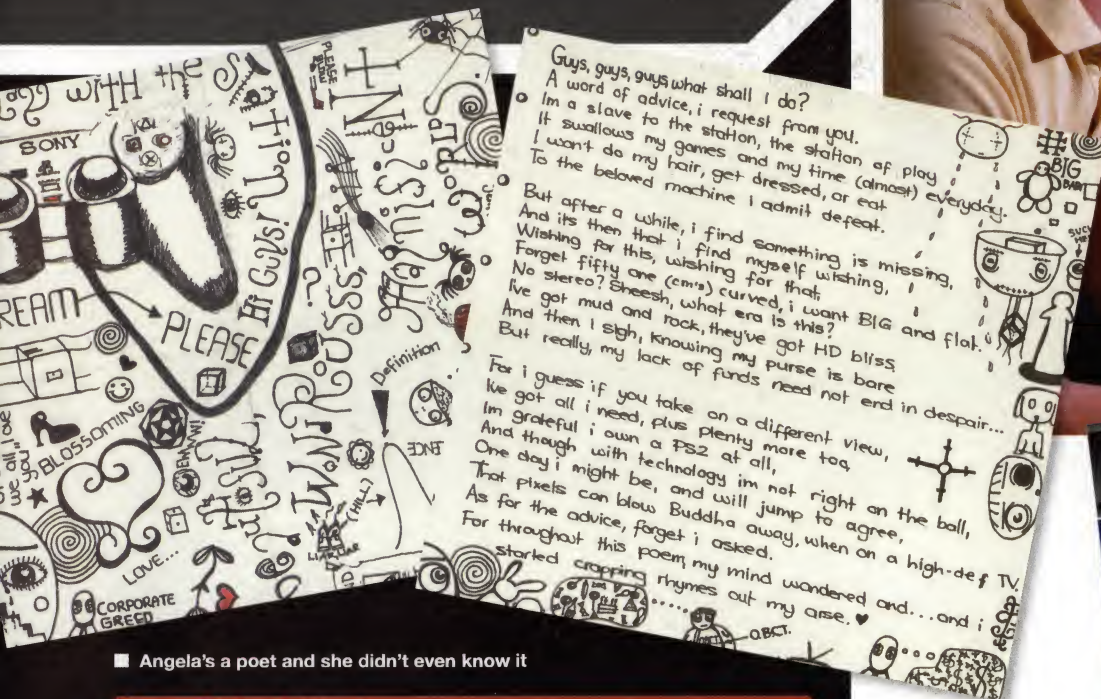 wITH the
SONY
Hi Guys!
REAM
PLEASE
BLOSSOMING
we all
you"
EWWW!
LOVE...
CORPORATE
GREED
PLEASE
R.I.P
?
Definition
ENCE
(HILL)
Guys, guys, guys what shall I do?
A word of advice, i request from you.
Im a slave to the station, the station of play
It swallows my games and my time (almost) everyday.
I won't do my hair, get dressed, or eat
To the beloved machine I admit defeat.
But after a while, i find something is missing,
And its then that i find myself wishing,
Wishing for this, wishing for that,
Forget fifty one (cm's) curved, i want BIG and flat.
No stereo? Sheesh, what era is this?
I've got mud and rock, they've got HD bliss
And then I sigh, knowing my purse is bare
But really, my lack of funds need not end in despair...
For i guess if you take on a different view,
Ive got all i need, plus plenty more too,
Im grateful i own a PS2 at all,
And though with technology im not right on the ball,
One day i might be, and will jump to agree,
That pixels can blow Buddha away, when on a high-def TV.
As for the advice, forget i asked.
For throughout this poem, my mind wandered and...and i
started crapping rhymes out my arse.♥
BIG
O.B.C.T.
Angela's a poet and she didn't even know it